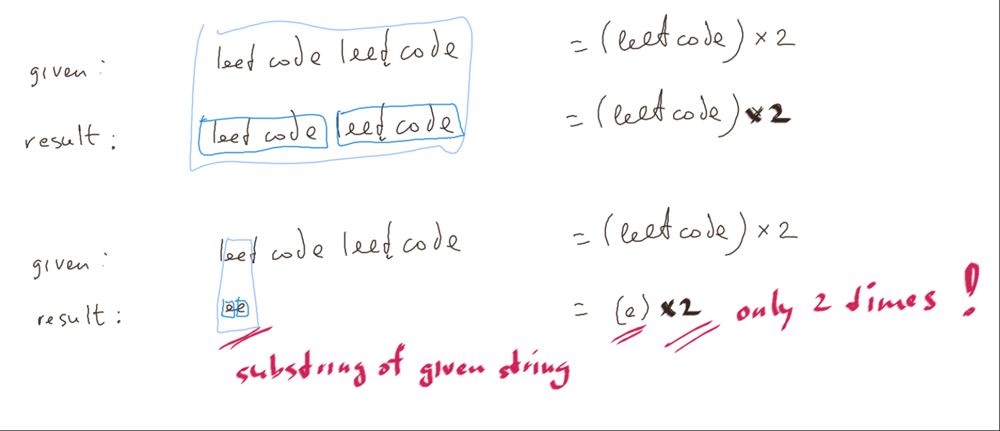 given: leet code leet code = (leetcode) × 2
result: leet code leet code = (leetcode) × 2
given: leet code leet code = (leetcode) × 2
result: ee = (e) × 2 only 2 times!
substring of given string